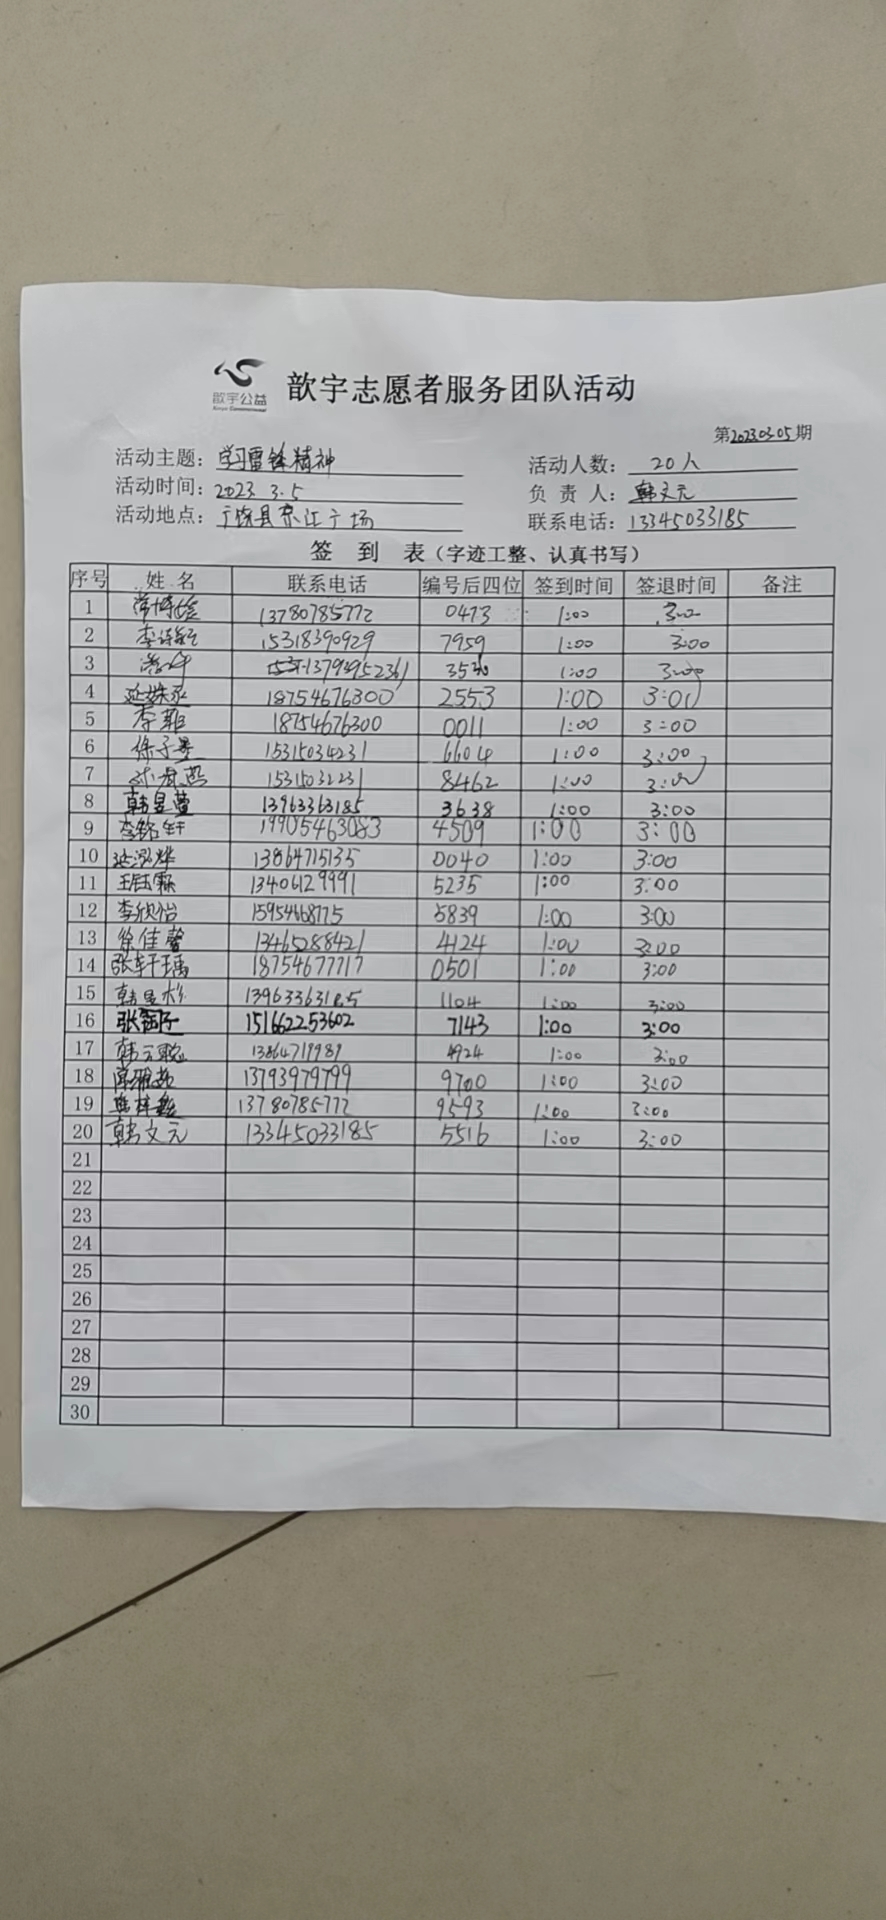 歆宇公益
歆宇志愿者服务团队活动
第2023.03.05期
活动主题：学习雷锋精神
活动人数：20人
活动时间：2023.3.5
负责人：韩文元
活动地点：广饶县乐安广场
联系电话：13345033185
签到表（字迹工整、认真书写）
序号 姓名 联系电话 编号后四位 签到时间 签退时间 备注
1 13780785772 0473 1:00 3:00
2 15318390929 7959 1:00 3:00
3 1:00 3:00
4 18754676300 2553 1:00 3:00
5 李菲 18754676300 0011 1:00 3:00
6 徐子墨 15315034231 6604 1:00 3:00
7 1531503223 8462 1:00 3:00
8 韩昱萱 13963363185 3638 1:00 3:00
9 李铭轩 19905463083 4509 1:00 3:00
10 延泓烨 13864715135 0040 1:00 3:00
11 王钰霖 13406129991 5235 1:00 3:00
12 李欣怡 15954668775 5839 1:00 3:00
13 徐佳馨 13465288421 4124 1:00 3:00
14 张轩瑀 18754677717 0501 1:00 3:00
15 韩昱杉 13963363185 1104 1:00 3:00
16 151662253602 7143 1:00 3:00
17 韩元聪 1386471998 4924 1:00 3:00
18 13793979799 9700 1:00 3:00
19 13780785772 9593 1:00 3:00
20 韩文元 13345033185 5516 1:00 3:00
21
22
23
24
25
26
27
28
29
30